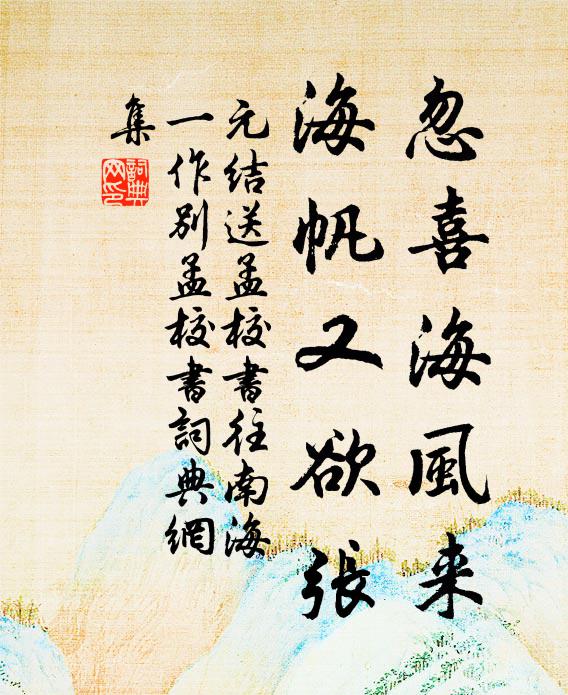 忽喜海風来
海帆又欲張
元结送孟校書往南海
一作别孟校書詞典網
集
詞典網印